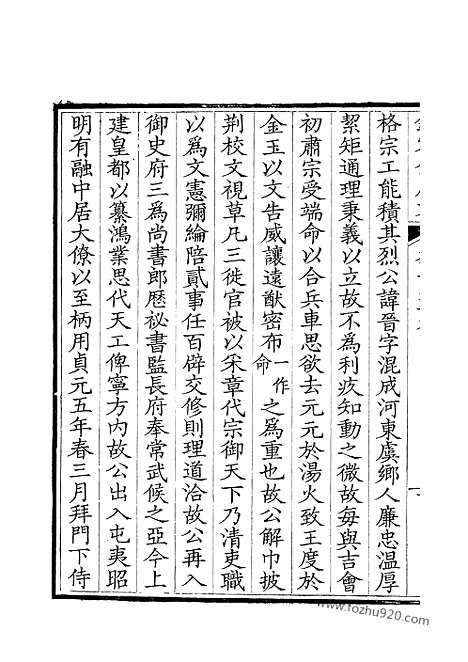 格宗工能積其烈公諱晉字混成河東虞鄉人廉忠温厚
絜矩通理秉義以立故不為利疚知動之微故毎與吉會
初肅宗受端命以合兵車思欲去元元於湯火致王度於
金玉以文告威讓遠猷密布一作命之為重也故公解巾披
荆校文視草凡三徙官被以采章代宗御天下乃清吏職
以為文憲彌綸陪貳事任百辟交修則理道洽故公再入
御史府三為尚書郎歴祕書監長府奉常武候之亞今上
建皇都以纂鴻業思代天工俾寧方内故公出入屯夷昭
明有融中居大僚以至柄用貞元五年春三月拜門下侍
www.fozhu920.com